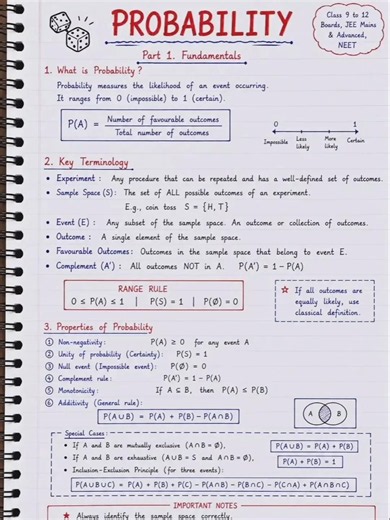 PROBABILITY
Class 9 to 12
Boards, JEE Mains
& Advanced,
NEET
Part 1. Fundamentals
1. What is Probability?
Probability measures the likelihood of an event occurring.
It ranges from 0 (impossible) to 1 (certain).
P(A) = Number of favourable outcomes / Total number of outcomes
0 1
Impossible Less likely More likely Certain
2. Key Terminology
• Experiment : Any procedure that can be repeated and has a well-defined set of outcomes.
• Sample Space (S): The set of ALL possible outcomes of an experiment.
E.g., coin toss S = {H, T}
• Event (E) : Any subset of the sample space. An outcome or collection of outcomes.
• Outcome : A single element of the sample space.
• Favourable Outcomes: Outcomes in the sample space that belong to event E.
• Complement (A') : All outcomes NOT in A. P(A') = 1 - P(A)
RANGE RULE
0 ≤ P(A) ≤ 1 | P(S) = 1 | P(Ø) = 0
☆ If all outcomes are
equally likely, use
classical definition.
3. Properties of Probability
① Non-negativity: P(A) ≥ 0 for any event A
② Unity of probability (Certainty): P(S) = 1
③ Null event (Impossible event): P(Ø) = 0
④ Complement rule: P(A') = 1 - P(A)
⑤ Monotonicity: If A ⊆ B, then P(A) ≤ P(B)
⑥ Additivity (General rule):
P(A∪B) = P(A) + P(B) - P(A∩B)
A B
Special Cases:
• If A and B are mutually exclusive (A∩B = Ø), P(A∪B) = P(A) + P(B)
• If A and B are exhaustive (A∪B = S and A∩B = Ø), P(A) + P(B) = 1
• Inclusion-Exclusion Principle (for three events):
P(A∪B∪C) = P(A) + P(B) + P(C) - P(A∩B) - P(B∩C) - P(C∩A) + P(A∩B∩C)
IMPORTANT NOTES
★ Always identify the sample space correctly.